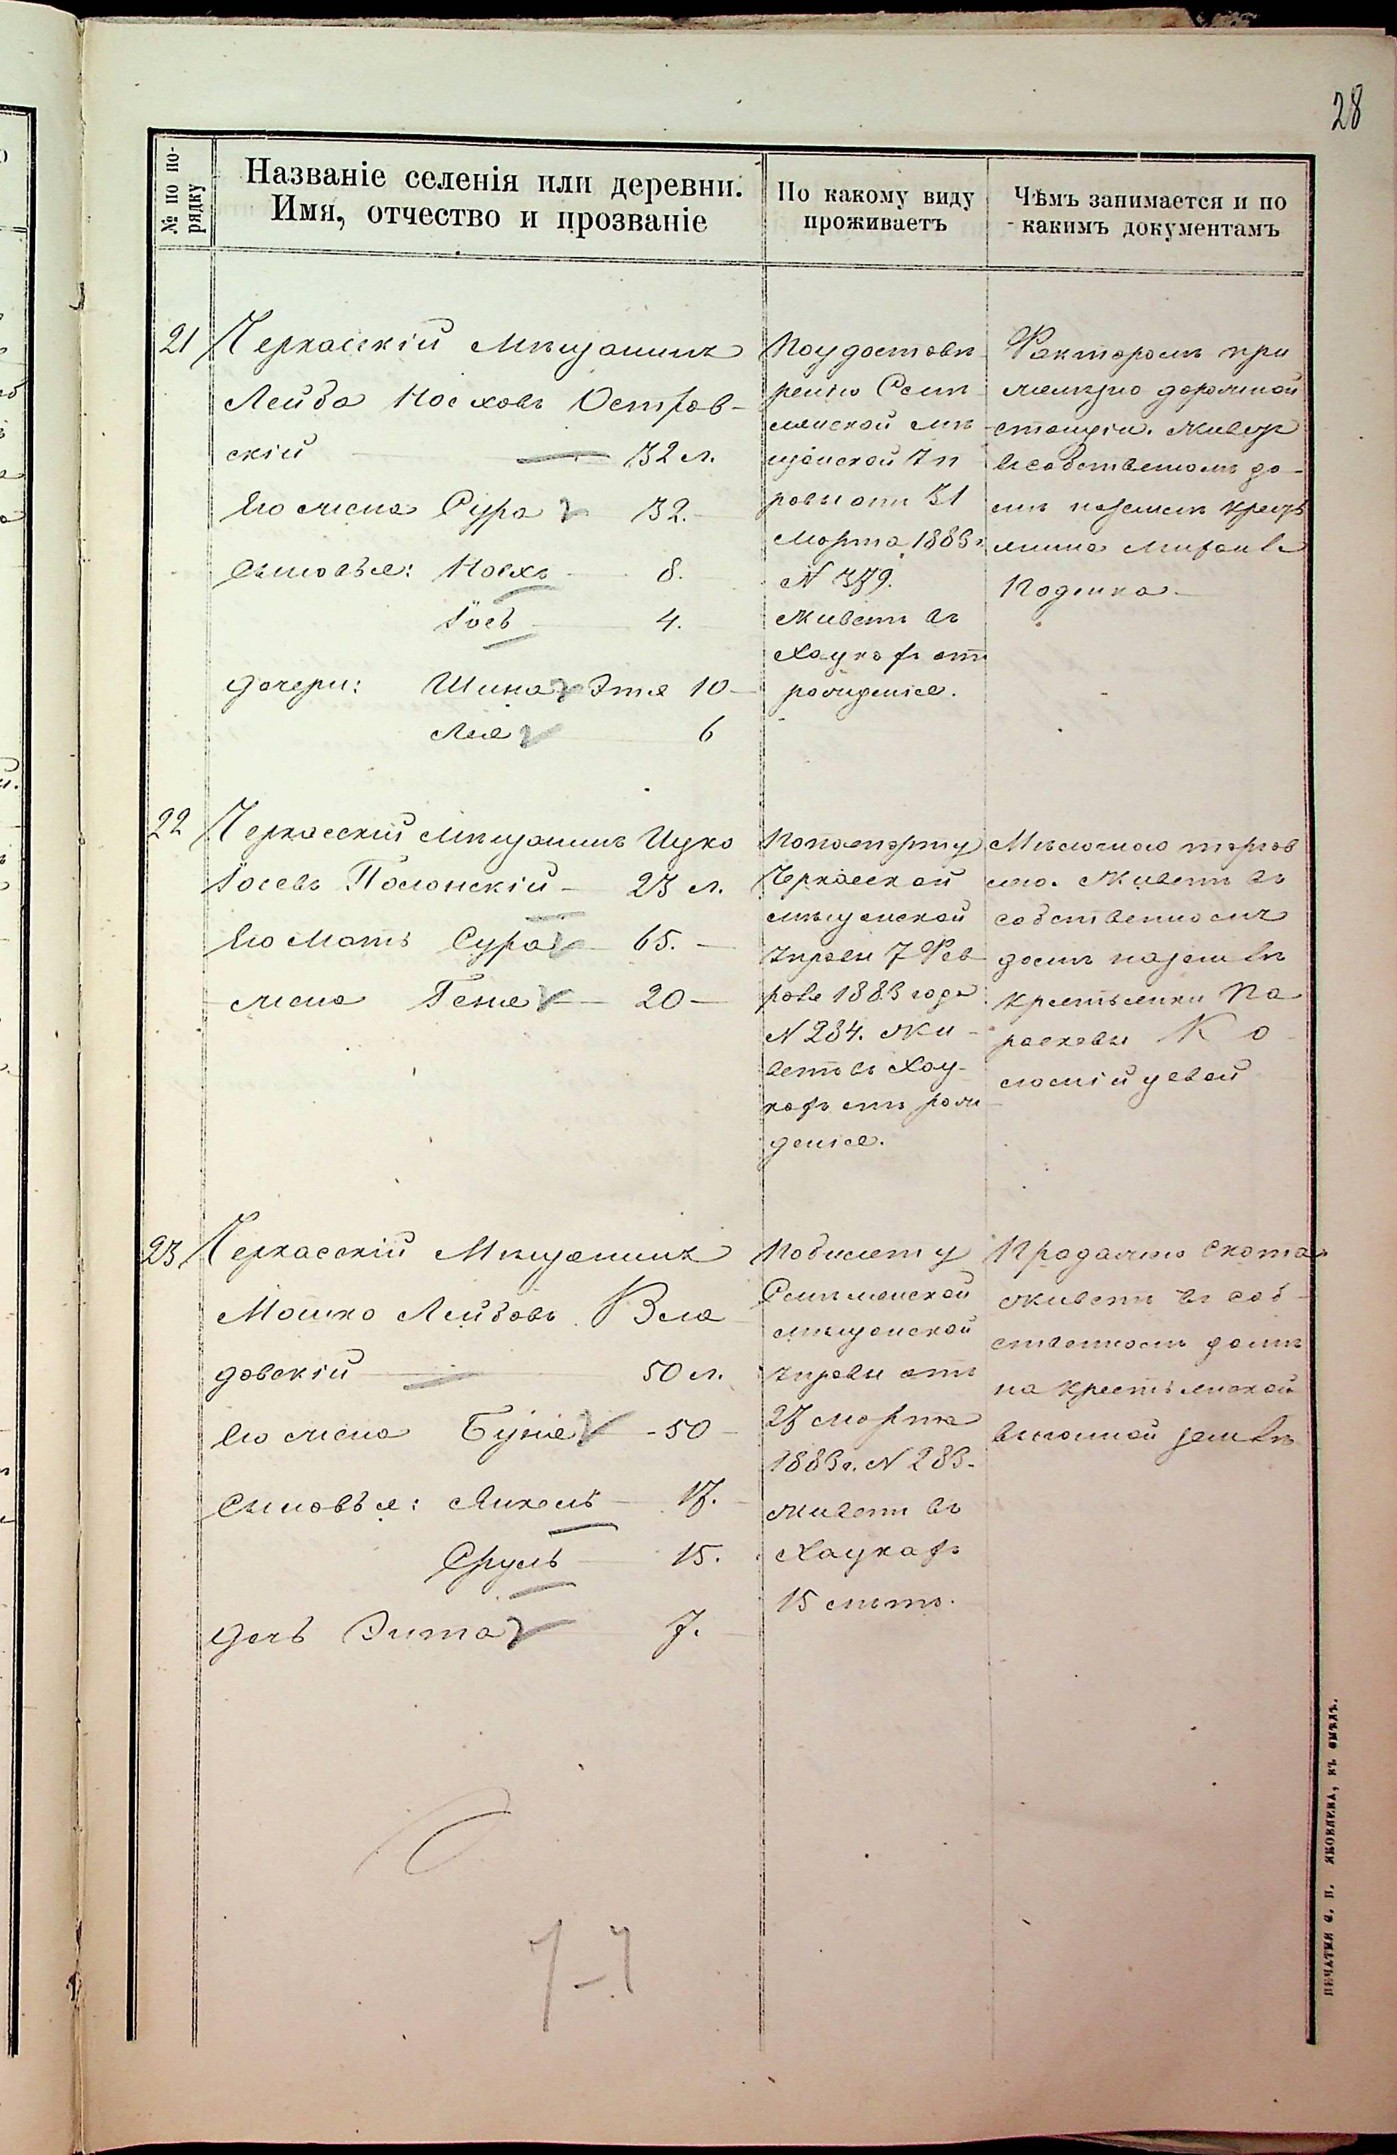 28
№ по по-
рядку
Названіе селенія или деревни.
Имя, отчество и прозваніе
По какому виду
проживаетъ
Чѣмъ занимается и по
какимъ документамъ
21 Черкасскій мѣщанинъ
Лейба Носховъ Остров-
скій — 32 л.
Его жена Сура 32.
Сыновья: Носхъ 8.
Іось 4.
дочери: Шина Этя 10
Лея 6
По удостовѣ
ренію Смѣ
лянской мѣ
щанской Уп
равы отъ 31
Марта 1883 г.
№ 379.
Живетъ въ
Хацкахъ отъ
рожденія.
Факторомъ при
желѣзно дорожной
станціи. Живетъ
въ собственномъ до
мѣ на землѣ крестъ
янина
22 Черкасскій мѣщанинъ Ицко
Іосевъ Полонскій — 23 л.
Его мать Сура 65.
жена Геня 20
По паспорту
Черкасской
мѣщанской
Управы 7 Фев
раля 1883 года
№ 234. Жи
ветъ въ Хац-
кахъ отъ рож
денія.
Мѣлочною торгов
лею. Живетъ въ
собственномъ
домѣ на землѣ
крестьянки Па
расковы Ко
23 Черкасскій Мѣщанинъ
Мошко Лейбовъ Вла
довскій 50 л.
Его жена Буня 50
Сыновья: Янкель 17.
Сруль 15.
дочь Эита 7.
По билету
Смѣлянской
мѣщанской
управы отъ
27 марта
1883 г. № 283.
Живетъ въ
Хацкахъ
15 лѣтъ.
Продажею скота
живетъ въ соб
ственномъ домѣ
на крестьянской
выгонной землѣ
7-7
ПЕЧАТНИ С. П. ЯКОВЛЕВА, ВЪ СМѢЛѢ.